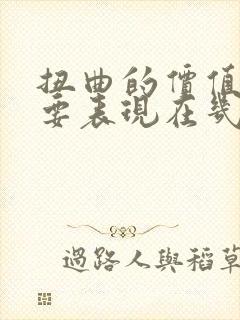 扭曲的價值
要表現在幾
過路人與稻草